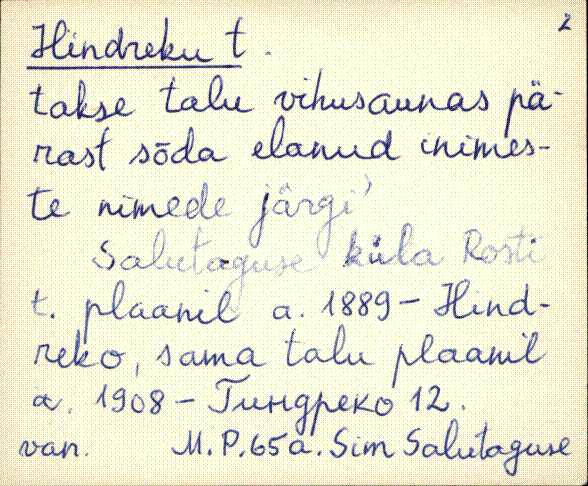 2
Hindreku t.
takse talu vihusaunas pä-
rast sõda elanud inimes-
te nimede järgi'
Salutaguse küla Rosti
t. plaanil a. 1889 - Hind-
reko, sama talu plaanil
a. 1908 - Гиндреко 12.
van. M.P. 65 a. Sim Salutaguse